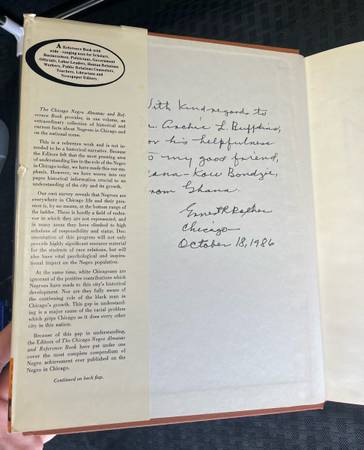 A Reference Book with
wide - ranging uses for Scholars,
Businessmen, Politicians, Government
Officials, Labor Leaders, Human Relations
Workers, Public Relations Counselors,
Teachers, Librarians and
Newspaper Editors.
The Chicago Negro Almanac and Ref-
erence Book provides, in one volume, an
extraordinary collection of historical and
current facts about Negroes in Chicago and
on the national scene.
This is a reference work and is not in-
tended to be a historical narrative. Because
the Editors felt that the most pressing area
of understanding lies in the role of the Negro
in Chicago today, we have made this our em-
phasis. However, we have woven into our
pages historical information crucial to an
understanding of the city and its growth.
Our own survey reveals that Negroes are
everywhere in Chicago life and their pres-
ence is, by no means, at the bottom range of
the ladder. There is hardly a field of endea-
vor in which they are not represented, and
in many areas they have climbed to high
echelons of responsibility and status. Doc-
umentation of this progress will not only
provide highly significant resource material
for the students of race relations, but will
also have vital psychological and inspira-
tional impact on the Negro population.
At the same time, white Chicagoans are
ignorant of the positive contributions which
Negroes have made to this city's historical
development. Nor are they fully aware of
the continuing role of the black man in
Chicago's growth. This gap in understand-
ing is a major cause of the racial problem
which grips Chicago as it does every other
city in this nation.
Because of this gap in understanding,
the Editors of The Chicago Negro Almanac
and Reference Book have put under one
cover the most complete compendium of
Negro achievement ever published on the
Negro in Chicago.
Continued on back flap.
With kind regards to
Archie L. Buffkins,
for his helpfulness
to my good friend,
Kow Bondzie,
from Ghana.
Ernest R Rather
Chicago
October 18, 1986